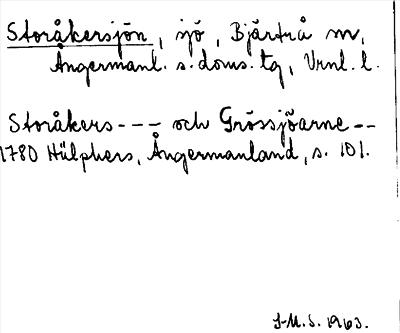 Storåkersjön, sjö, Bjärtrå sn,
Ångermanl. s. doms. tg, Vrnl. l.
Storåkers--- och Grössjöarne--
1780 Hülphers, Ångermanland, s. 101.
J-M.S. 1963.